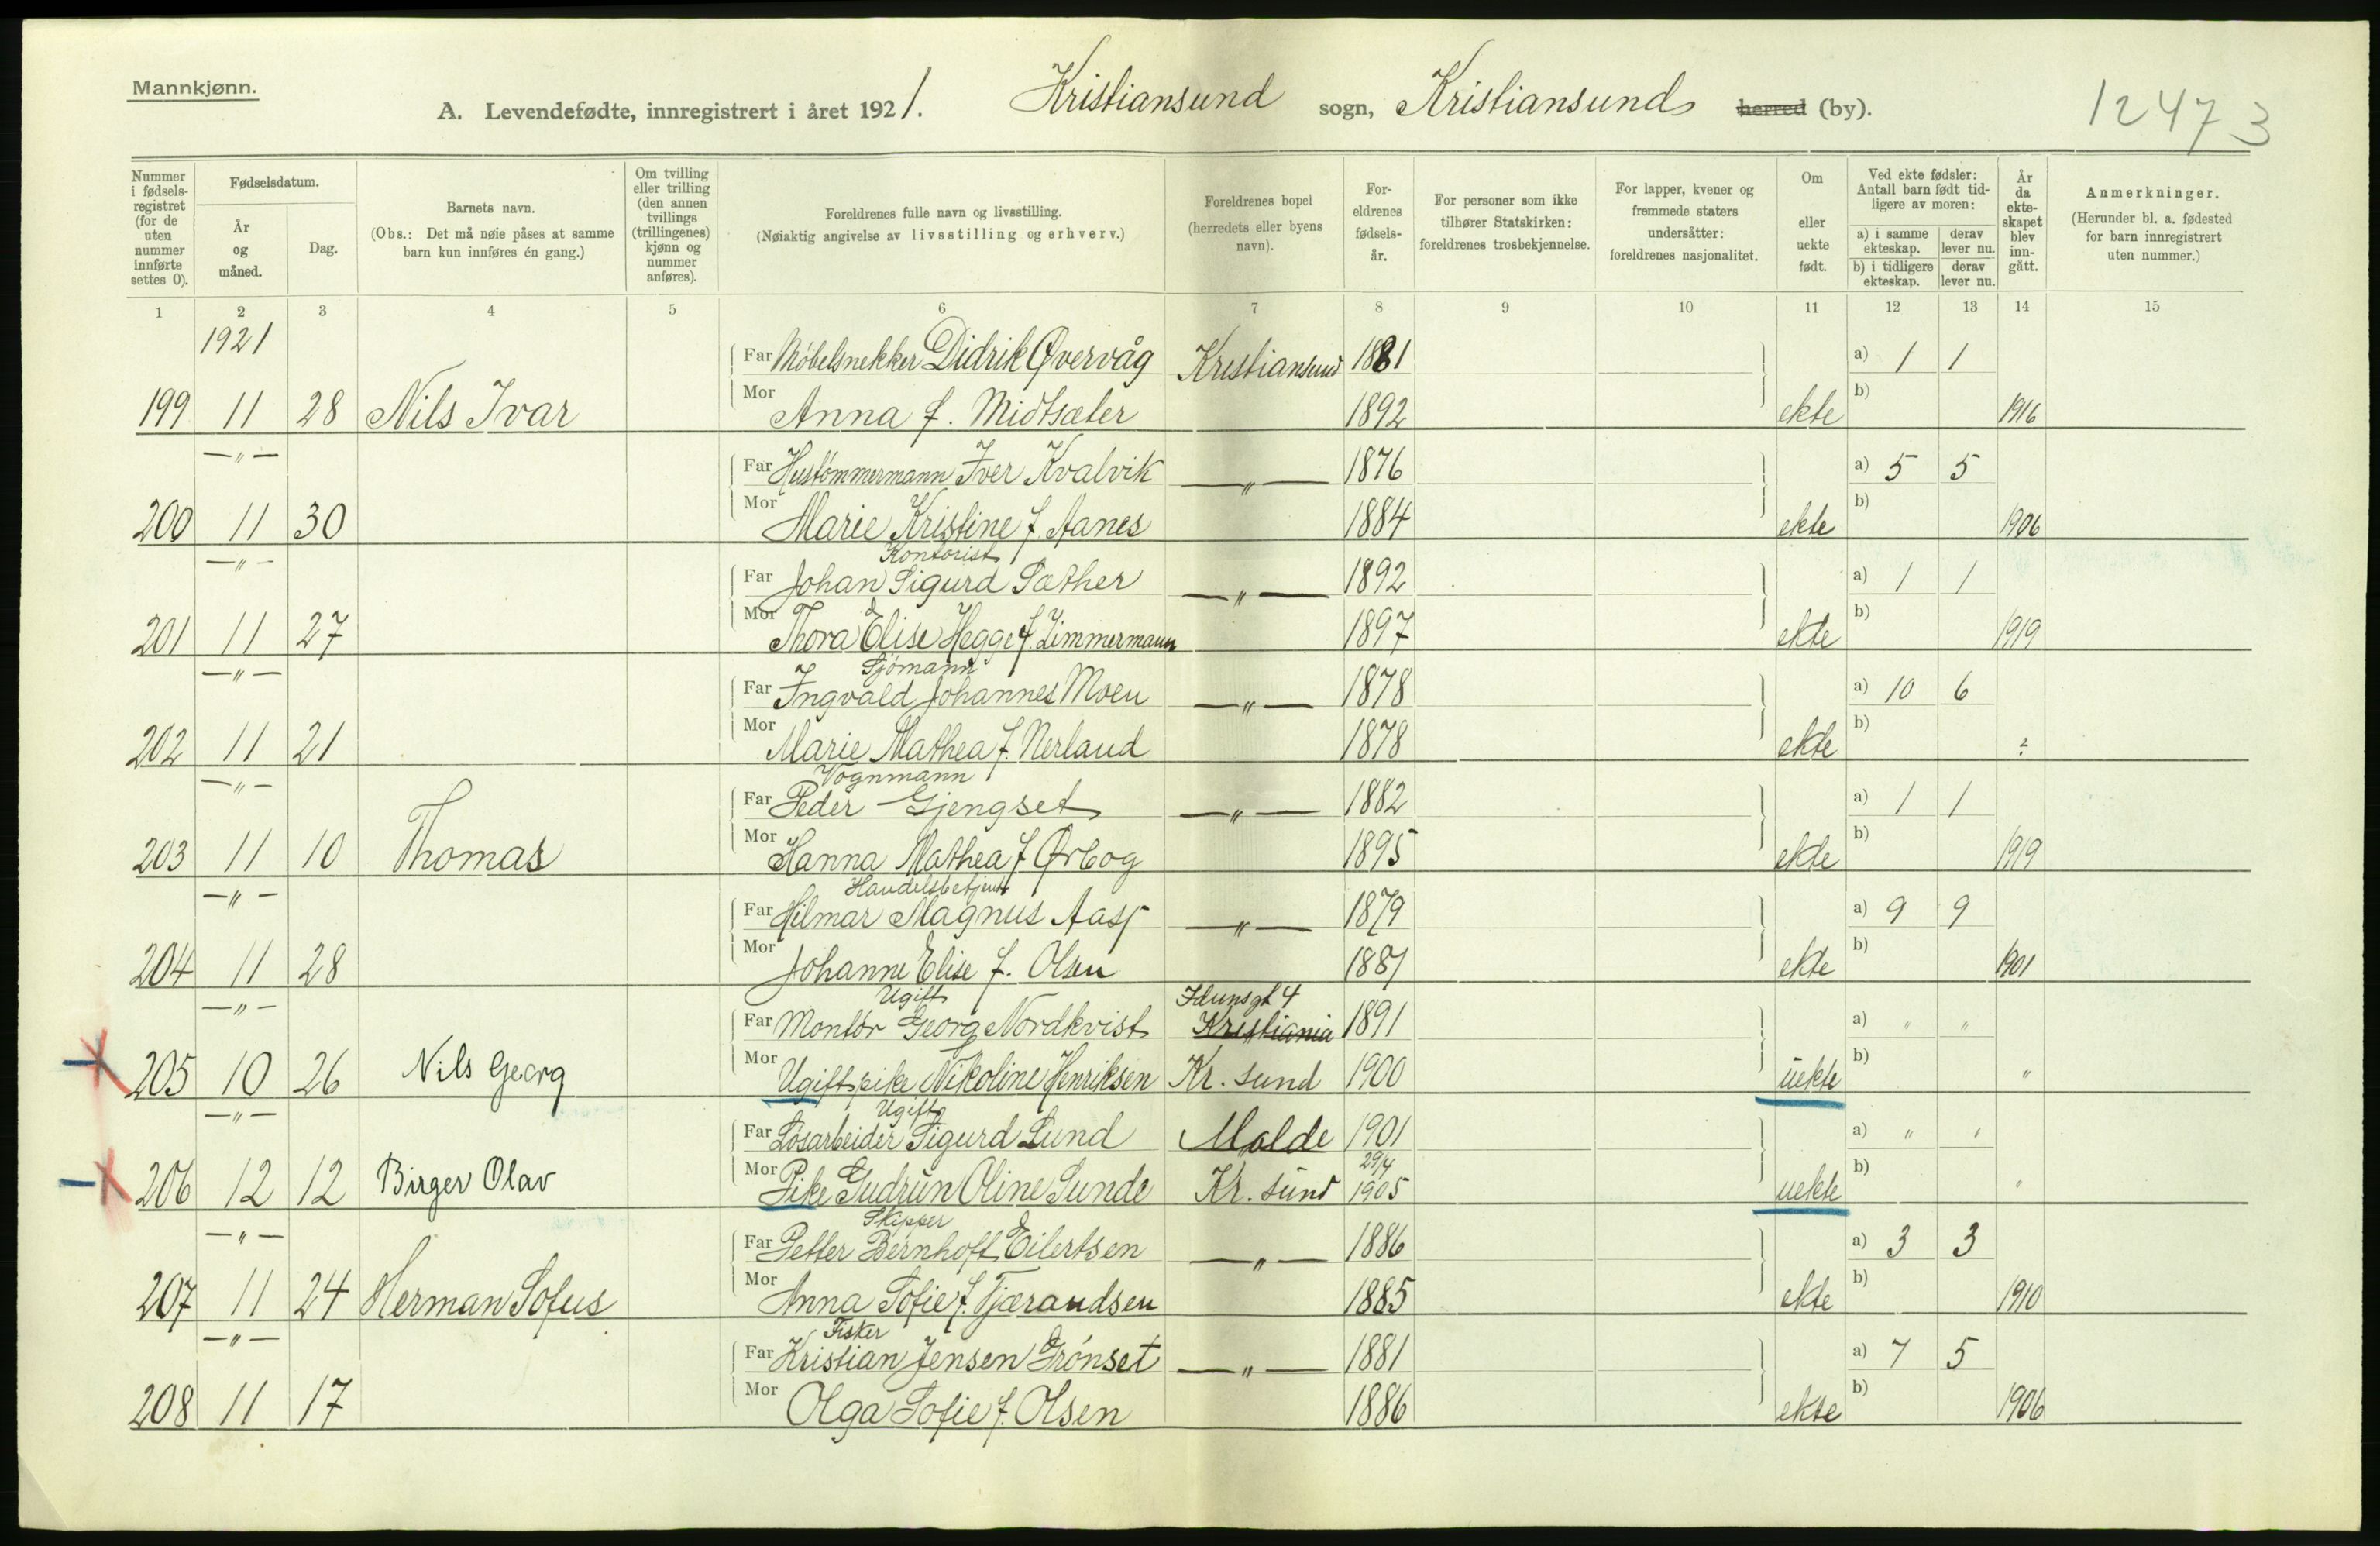 Mannkjønn.
A. Levendefødte, innregistrert i året 1921. Kristiansund sogn, Kristiansund herred (by). 12473
Nummer i fødselsregistret (for de uten nummer innførte settes 0).
Fødselsdatum.
År og måned.
Dag.
Barnets navn.
(Obs.: Det må nøie påses at samme barn kun innføres én gang.)
Om tvilling eller trilling (den annen tvillings (trillingenes) kjønn og nummer anføres).
Foreldrenes fulle navn og livsstilling.
(Nøiaktig angivelse av livsstilling og erhverv.)
Foreldrenes bopel (herredets eller byens navn).
Foreldrenes fødselsår.
For personer som ikke tilhører Statskirken: foreldrenes trosbekjennelse.
For lapper, kvener og fremmede staters undersåtter: foreldrenes nasjonalitet.
Om eller uekte født.
Ved ekte fødsler: Antall barn født tidligere av moren:
a) i samme ekteskap. derav lever nu.
b) i tidligere ekteskap. derav lever nu.
År da ekteskapet blev inngått.
Anmerkninger.
(Herunder bl. a. fødested for barn innregistrert uten nummer.)
1 2 3 4 5 6 7 8 9 10 11 12 13 14 15
1921
Far Møbelsnekker Didrik Øvervåg Kristiansund 1881 a) 1 1
199 11 28 Nils Ivar Mor Anna f. Midtsæter 1892 ekte b) 1916
—"— Far Hustømmermann Iver Kvalvik —"— 1876 a) 5 5
200 11 30 Mor Marie Kristine f. Aanes 1884 ekte b) 1906
Kontorist
—"— Far Johan Sigurd Sæther —"— 1892 a) 1 1
201 11 27 Mor Thora Elise Hegge f. Zimmermann 1897 ekte b) 1919
Sjømann
—"— Far Ingvald Johannes Moen —"— 1878 a) 10 6
202 11 21 Mor Marie Mathea f. Nerland 1878 ekte b) ?
Vognmann
—"— Far Peder Gjengset —"— 1882 a) 1 1
203 11 10 Thomas Mor Hanna Mathea f. Ørbog 1895 ekte b) 1919
Handelsbetjent
—"— Far Hilmar Magnus Aasj —"— 1879 a) 9 9
204 11 28 Mor Johanne Elise f. Olsen 1881 ekte b) 1901
Ugift Idunsgt 4
—"— Far Montør Georg Nordkvist Kristiania 1891 a) " "
205 10 26 Nils Georg Mor Ugift pike Nikoline Henriksen Kr. sund 1900 uekte b) "
Ugift
—"— Far Løsarbeider Sigurd Lund Molde 1901 a) " "
29/4
206 12 12 Birger Olav Mor Pike Gudrun Oline Sunde Kr. sund 1905 uekte b) "
Skipper
—"— Far Petter Bernhoft Eilertsen —"— 1886 a) 3 3
207 11 24 Herman Sofus Mor Anna Sofie f. Tjærandsen 1885 ekte b) 1910
Fisker
—"— Far Kristian Jensen Grønset —"— 1881 a) 7 5
208 11 17 Mor Olga Sofie f. Olsen 1886 ekte b) 1906